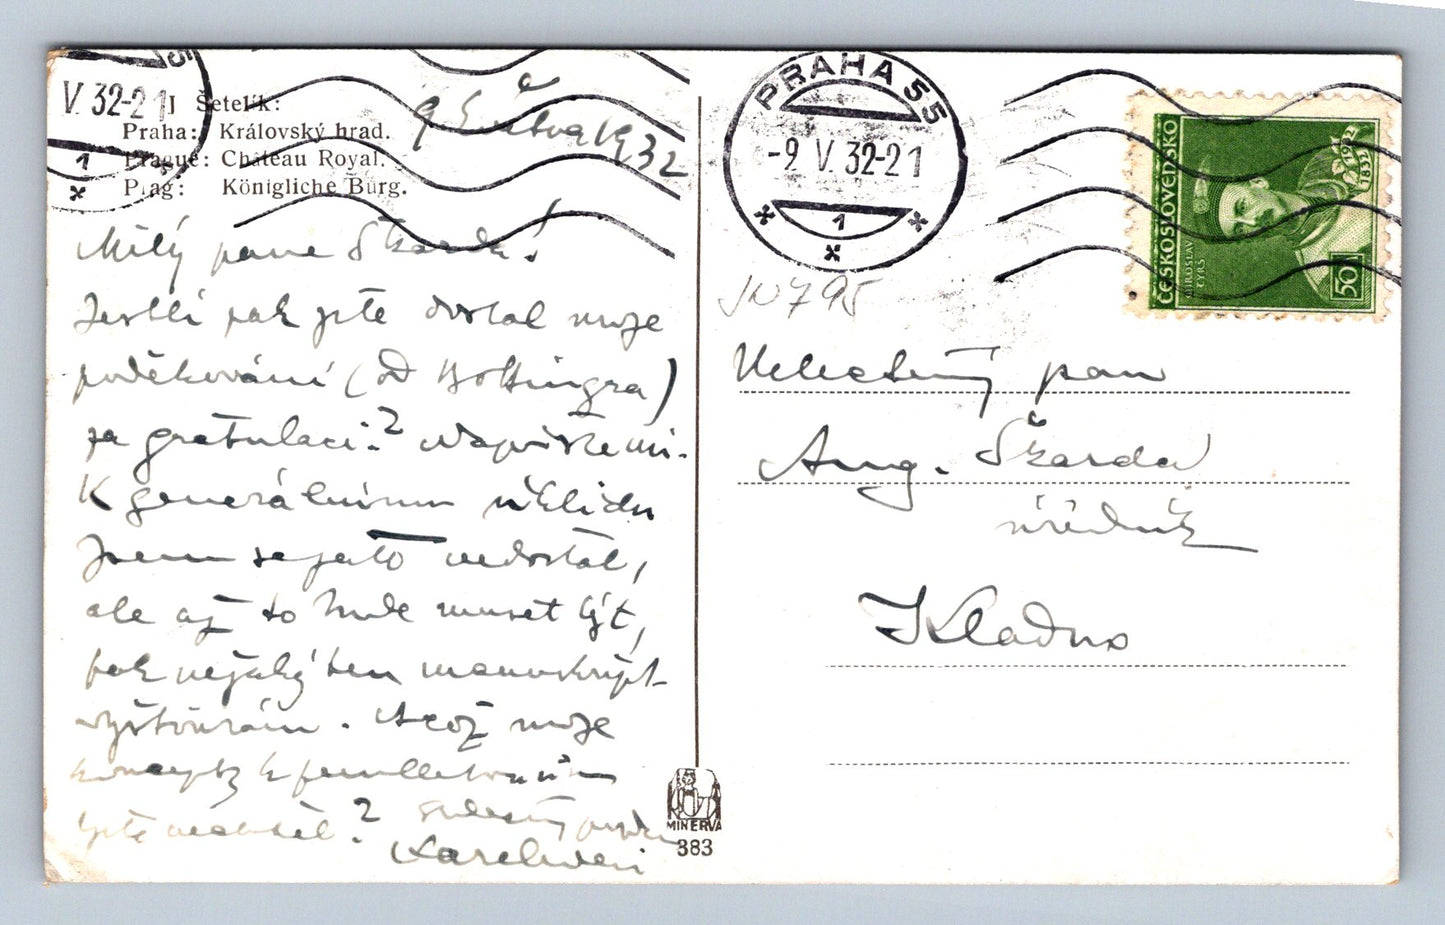 V. 32-21
J Šetelík:
Praha: Královský hrad.
Prague: Château Royal.
Prag: Königliche Burg.
9 června 1932
Milý pane Škarda!
Jestli pak jste dostal moje
poděkování (D
za gratulaci? Napište mi.
K generálnímu úklidu
jsem se ještě nedostal,
ale až to bude muset být,
pak nějaký ten manuskript
vyštourám. A což moje
koncepty k feuilletonům
jste nechtěl? Srdečný pozdrav
PRAHA 55
-9. V. 32-21
1
ČESKOSLOVENSKO
MIROSLAV
TYRŠ
1832 1932
50
JN 795
Velectěný pan
Aug. Škarda
úředník
Kladno
MINERVA
383